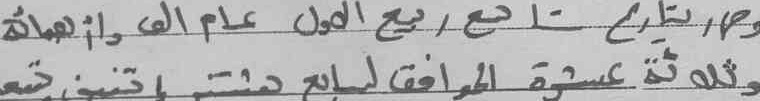 وحرر بتاريخ تاسع ربيع الاول عام الف واربعمائة
وثلاثة عشرة الموافق لسابع شتنبر اثنين تسعـ